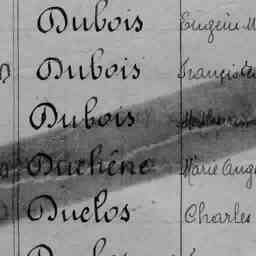 Dubois Eugène M
Dubois Françis
Dubois
Duchêne Marie Ang
Duclos Charles